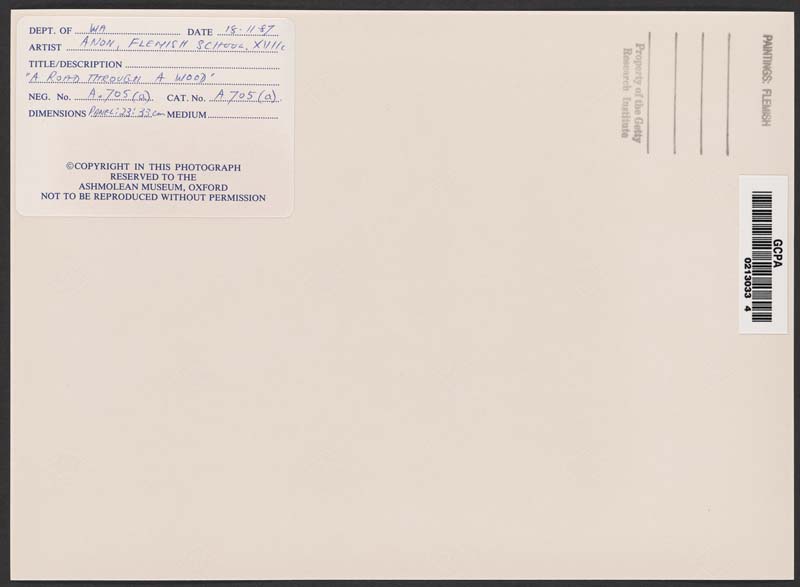 DEPT. OF WA DATE 18-11-87
ARTIST ANON, FLEMISH SCHOOL, XVIIc
TITLE/DESCRIPTION
"A ROAD THROUGH A WOOD"
NEG. No. A.705(a) CAT. No. A 705(a)
DIMENSIONS Panel: 23: 33 cm MEDIUM
©COPYRIGHT IN THIS PHOTOGRAPH
RESERVED TO THE
ASHMOLEAN MUSEUM, OXFORD
NOT TO BE REPRODUCED WITHOUT PERMISSION
Property of the Getty
Research Institute
PAINTINGS: FLEMISH
GCPA
0213033 4